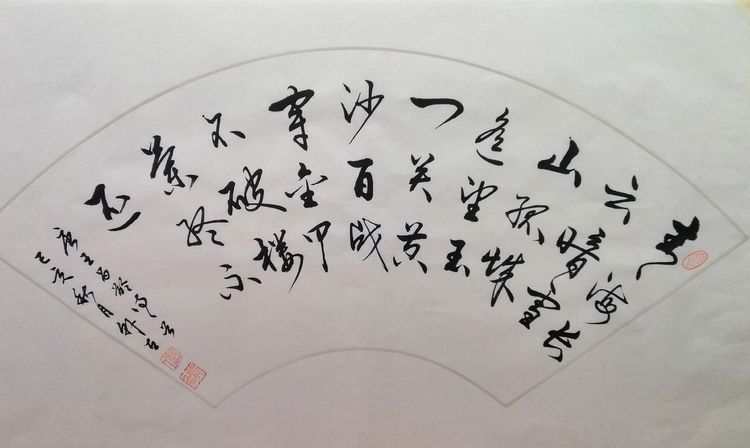 青海长
云暗雪
山孤城
遥望玉
门关黄
沙百战
穿金甲
不破楼
兰终不
还
唐王昌龄
己亥秋月